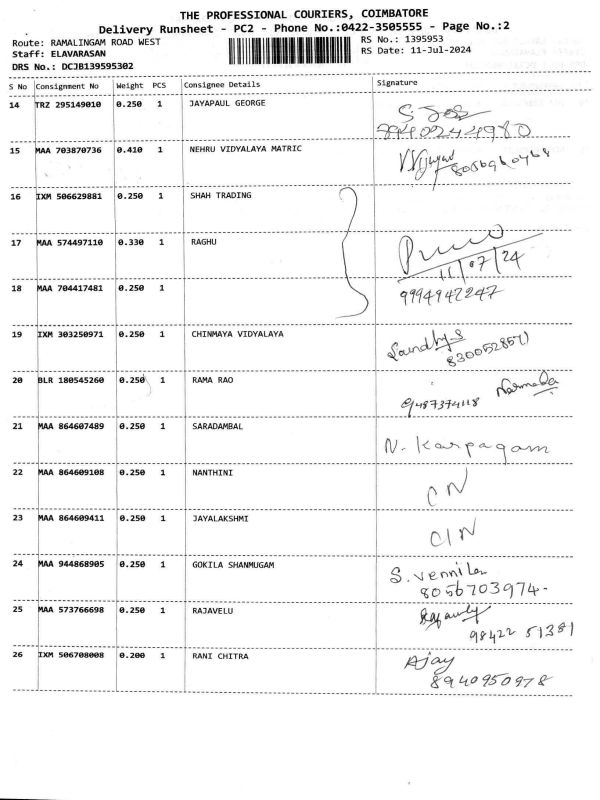 THE PROFESSIONAL COURIERS, COIMBATORE
Delivery Runsheet - PC2 - Phone No.:0422-3505555 - Page No.:2
Route: RAMALINGAM ROAD WEST
Staff: ELAVARASAN
DRS No.: DCJB139595302
RS No.: 1395953
RS Date: 11-Jul-2024
S No Consignment No Weight PCS Consignee Details Signature
14 TRZ 295149010 0.250 1 JAYAPAUL GEORGE
15 MAA 703870736 0.410 1 NEHRU VIDYALAYA MATRIC
16 IXM 506629881 0.250 1 SHAH TRADING
17 MAA 574497110 0.330 1 RAGHU
11/07/24
18 MAA 704417481 0.250 1 9994947247
19 IXM 303250971 0.250 1 CHINMAYA VIDYALAYA
20 BLR 180545260 0.250 1 RAMA RAO Narmada
9487374118
21 MAA 864607489 0.250 1 SARADAMBAL N. Karpagam
22 MAA 864609108 0.250 1 NANTHINI
23 MAA 864609411 0.250 1 JAYALAKSHMI
24 MAA 944868905 0.250 1 GOKILA SHANMUGAM S. Vennila
8056703974-
25 MAA 573766698 0.250 1 RAJAVELU
98422 51381
26 IXM 506708008 0.200 1 RANI CHITRA Ajay
8940950978